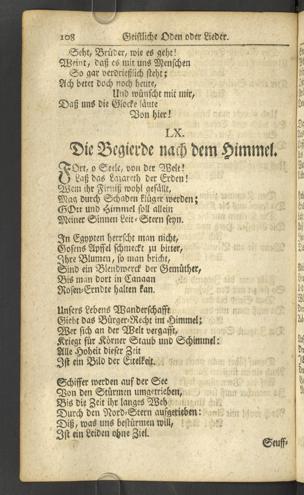 108 Geistliche Oden oder Lieder.
Seht, Brüder, wie es geht!
Weint, daß es mit uns Menschen
So gar verdrießlich steht;
Ach betet doch noch heute,
Und wünscht mit mir,
Daß uns die Glocke läute
Von hier!
LX.
Die Begierde nach dem Himmel.
FOrt, o Seele, von der Welt!
Laß das Lazareth der Erden!
Wem ihr Firniß wohl gefällt,
Mag durch Schaden klüger werden;
GOtt und Himmel soll allein
Meiner Sinnen Leit-Stern seyn.
In Egypten herrscht man nicht,
Gosens Apffel schmeckt zu bitter,
Ihre Blumen, so man bricht,
Sind ein Blendwerck der Gemüther,
Bis man dort in Canaan
Rosen-Erndte halten kan.
Unsers Lebens Wanderschafft
Giebt das Bürger-Recht im Himmel;
Wer sich an der Welt vergafft,
Kriegt für Körner Staub und Schimmel:
Alle Hoheit dieser Zeit
Ist ein Bild der Eitelkeit.
Schiffer werden auf der See
Von den Stürmen umgetrieben,
Bis die Zeit ihr langes Weh
Durch den Nord-Stern aufgerieben:
Diß, was uns bestürmen will,
Ist ein Leiden ohne Ziel.
Seuff-